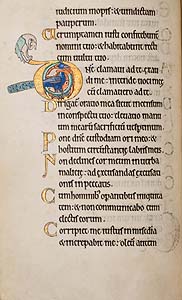 iudicium inopis: & uindictam
pauperum.
Uerumptamen iusti confitebuntur
nomini tuo: & habitabunt recti cum
uultu tuo.
Dñe clamaui ad te exau
di me: intende uoci mee
cum clamauero ad te.
Dirigatur oratio mea sicut incensum
in conspectu tuo: eleuatio manu
um mearum sacrificiũ uespertinũ.
Pone dñe custodiam ori meo: &
hostium circumstantie labiis meis.
Non declines cor meum in uerba
malicie: ad excusandas excusati
ones in peccatis.
Cum hominibus operantibus iniquitatẽ:
& non communicabo cum
electis eorum.
Corripiet me iustus in misericordia
& increpabit me: oleum autem